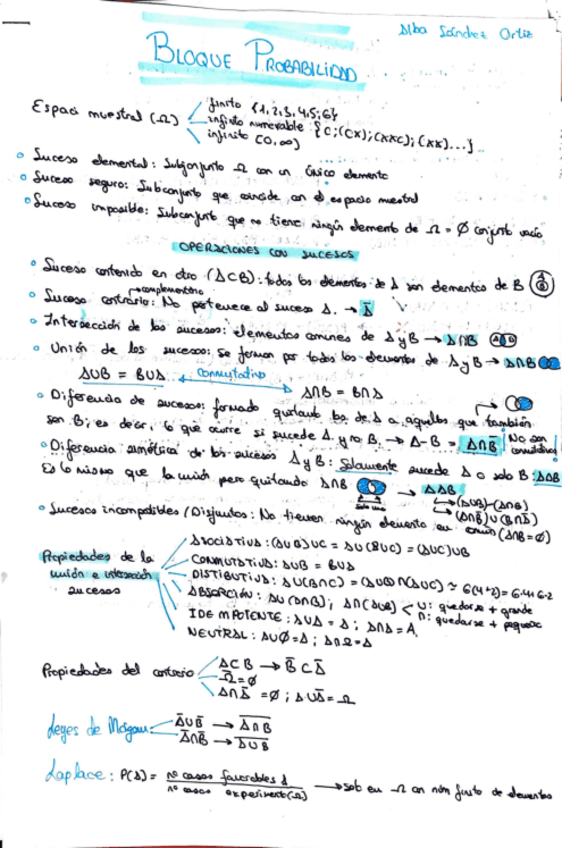 Alba Sánchez Ortiz
BLOQUE PROBABILIDAD
Espaci muestral (Ω)
finito {1,2,3,4,5,6}
infinito numerable {C;(CX);(XXC);(XX)...}
infinito (0,∞)
◦ Suceso elemental: Subjonjunto Ω con un único elemento
◦ Suceso seguro: Subconjunto que coincide con el espacio muestral
◦ Suceso imposible: Subconjunto que no tiene ningún elemento de Ω = Ø conjunto vacío
OPERACIONES CON SUCESOS
◦ Suceso contenido en otro (A⊂B): todos los elementos de A son elementos de B
→complementario
◦ Suceso contrario: No pertenece al suceso A. → Ā
◦ Intersección de los sucesos: elementos comunes de A y B → A∩B
◦ Unión de los sucesos: Se forman por todos los elementos de A y B → A∩B
A∪B = B∪A ← conmutativo → A∩B = B∩A
◦ Diferencia de sucesos: formado quitando los de A a aquellos que también
son B; es decir, lo que ocurre si sucede A y no B. → A-B = A∩B̄ No son conmutativos
◦ Diferencia simétrica de los sucesos A y B: Solamente sucede A o solo B: A∆B
Es lo mismo que la unión pero quitando A∩B → A∆B
→ (A∪B)-(A∩B)
→ (A∩B̄)∪(B∩Ā)
◦ Sucesos incompatibles / Disjuntos: No tienen ningún elemento en común (A∩B=Ø)
Propiedades de la unión e intersección sucesos
ASOCIATIVA: (A∪B)∪C = A∪(B∪C) = (A∪C)∪B
CONMUTATIVA: A∪B = B∪A
DISTIBUTIVA: A∪(B∩C) = (A∪B)∩(A∪C) ≈ 6(4+2) = 6·4+6·2
ABSORCIÓN: A∪(A∩B); A∩(A∪B) < ∪: quedarse + grande
∩: quedarse + pequeño
IDEMPOTENTE: A∪A = A; A∩A = A.
NEUTRAL: A∪Ø = A; A∩Ω = A
Propiedades del contrario
A⊂B → B̄⊂Ā
Ω̄ = Ø
A∩Ā = Ø; A∪Ā = Ω
Leyes de Morgan:
Ā∪B̄ → A∩B (con barra superior)
Ā∩B̄ → A∪B (con barra superior)
Laplace: P(A) = nº casos favorables A / nº casos experimento(Ω) → solo en Ω con núm finito de elementos